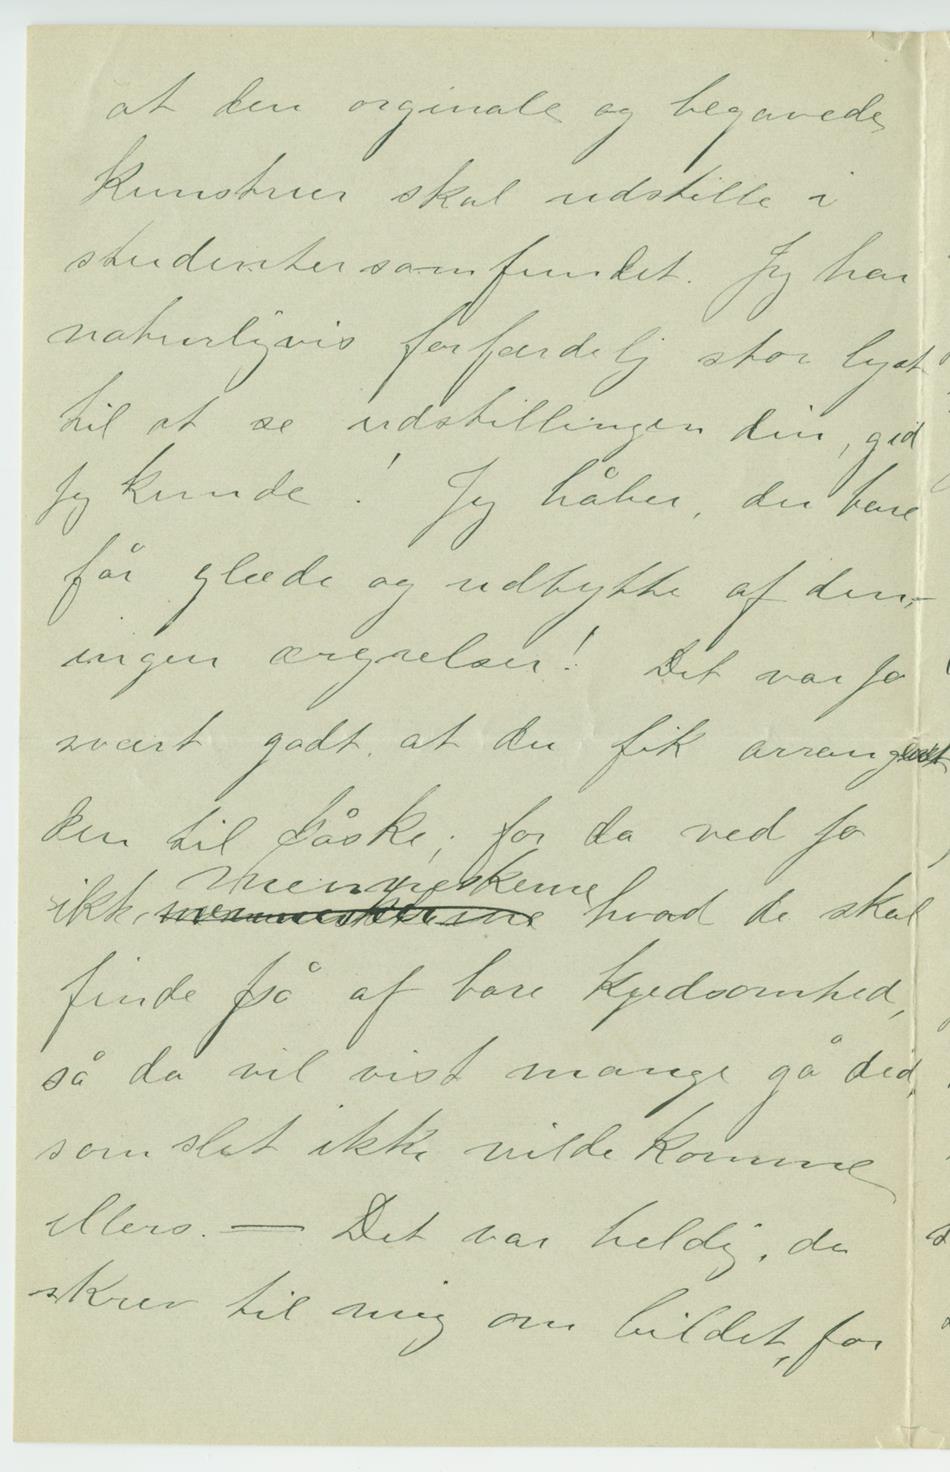 at den orginale og begavede
kunstner skal udstille i
studentersamfundet. Jeg har
naturligvis forfærdelig stor lyst
til at se udstillingen din, gid
jeg kunde! Jeg håber, du bare
får glæde og udbytte af den,–
ingen ærgrelser! Det var jo
svært godt, at du fik arrangeret
den til Påske; for da ved jo
menneskene
ikke menneskerne hvad de skal
finde på af bare kjedsomhed,
så da vil vist mange gå did,
som slet ikke vilde komme
ellers. — Det var heldig, du
skrev til mig om bildet, for